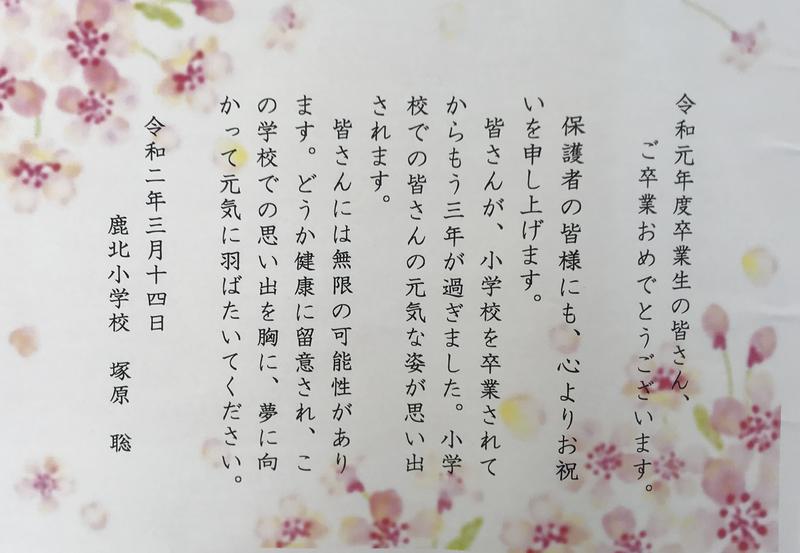 令和元年度卒業生の皆さん、
ご卒業おめでとうございます。
保護者の皆様にも、心よりお祝
いを申し上げます。
皆さんが、小学校を卒業されて
からもう三年が過ぎました。小学
校での皆さんの元気な姿が思い出
されます。
皆さんには無限の可能性があり
ます。どうか健康に留意され、こ
の学校での思い出を胸に、夢に向
かって元気に羽ばたいてください。
令和二年三月十四日
鹿北小学校 塚原 聡